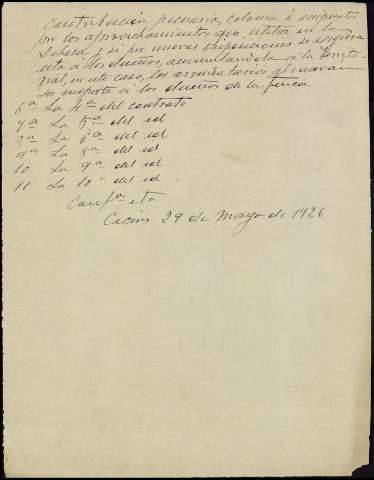 Contribucion pecuaria, colonia é impuestos
por los aprovechamientos que utilice en la
Dehesa y si por nuevas disposiciones se exigiera
esta a los dueños, acumulandola a la territo-
rial, en este caso, los arrendatarios abonaran
su importe a los dueños de la finca
6ª La 4ª del contrato
7ª La 5ª del id
8ª La 6ª del id
9ª La 8ª del id
10 La 9ª del id
11 La 10ª del id
Conf.ª esta
29 de Mayo de 1926